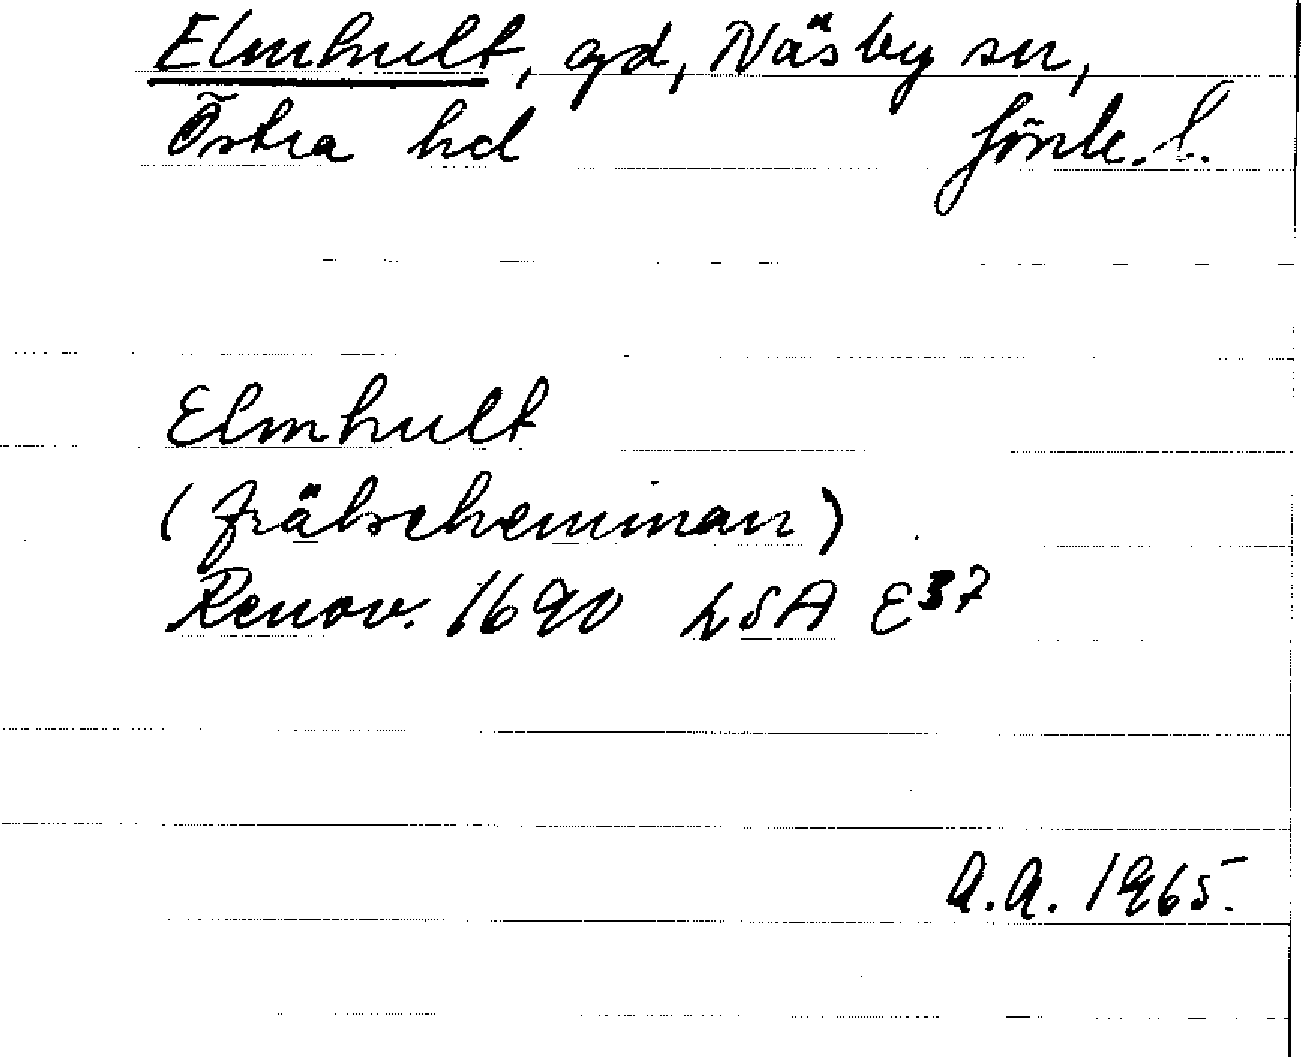 Elmhult, gd, Näsby sn,
Östra hd Jönk. l.
Elmhult
(frälsehemman)
Renov. 1690 LSA E37
A.A. 1965.